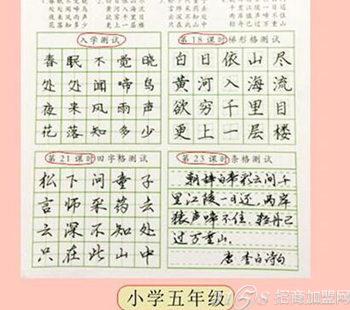 入学测试
春眠不觉晓
处处闻啼鸟
夜来风雨声
花落知多少
第18课时梯形格测试
白日依山尽
黄河入海流
欲穷千里目
更上一层楼
第21课时田字格测试
松下问童子
言师采药去
云深不知处
只在此山中
第23课时条格测试
朝辞白帝彩云间千
里江陵一日还,两岸
猿声啼不住,轻舟已
过万重山。
唐 李白诗句
小学五年级
招商加盟网